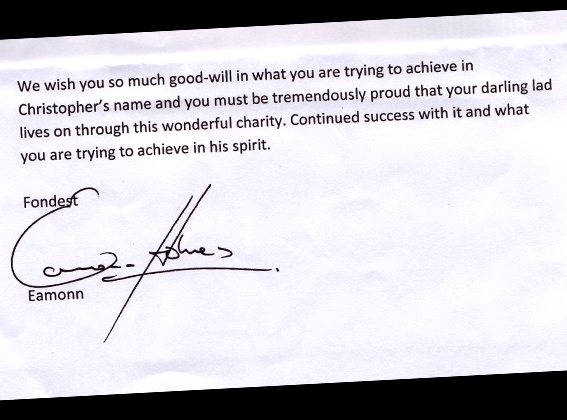 We wish you so much good-will in what you are trying to achieve in
Christopher's name and you must be tremendously proud that your darling lad
lives on through this wonderful charity. Continued success with it and what
you are trying to achieve in his spirit.
Fondest
Eamonn Holmes
Eamonn